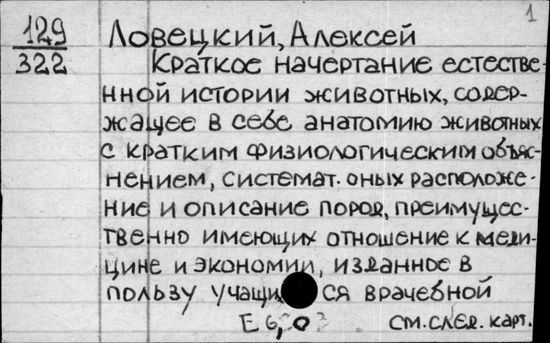 1
129
322
Ловецкий, Алексей
Краткое начертание естестве-
нной истории животных, содер-
жащее в себе анатомию животных
с кратким физиологическим объяс-
нением, системат. оных расположе-
ние и описание пород, преимущес-
твенно имеющих отношение к меди-
цине и экономии, изданное в
пользу учащихся врачебной
см. след. карт.